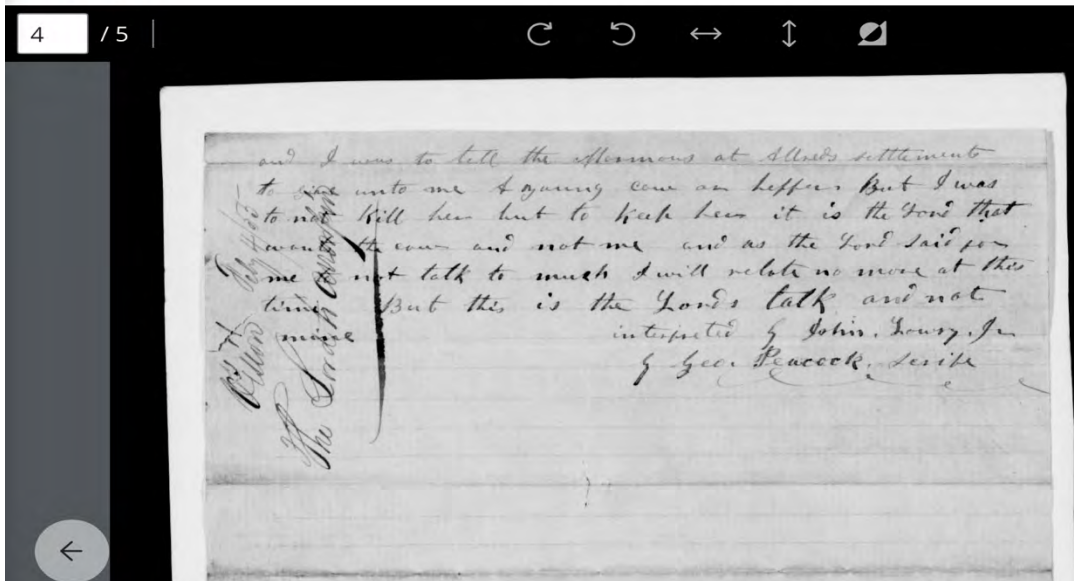 4 / 5
and I was to tell the Mormons at Allreds settlements
to give unto me A young cow or heffer But I was
to not Kill her but to Keep her it is the Lord that
wants the cow and not me and as the Lord said for
me not talk to much I will relate no more at this
time But this is the Lords talk and not
mine
interpreted by John Lowry Jr
by Geo. Peacock. scribe
The Lord's